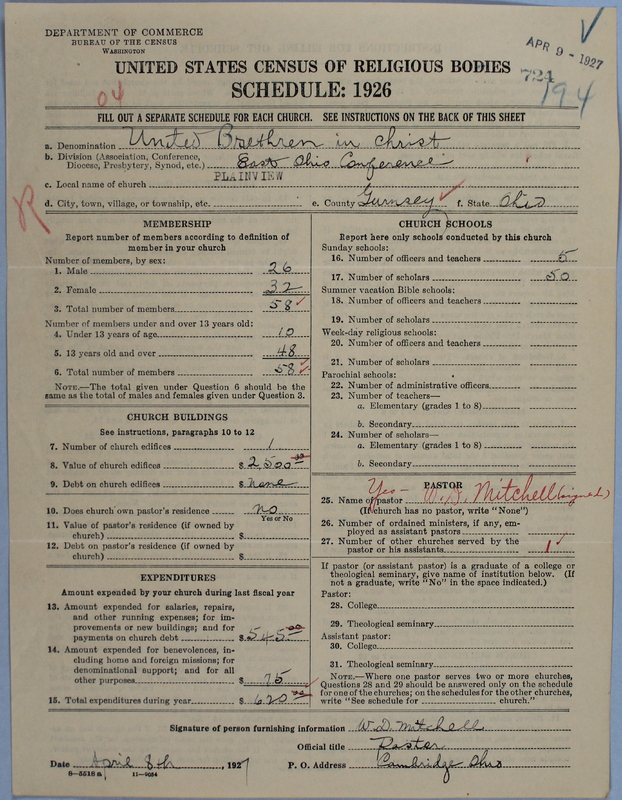 DEPARTMENT OF COMMERCE
BUREAU OF THE CENSUS
WASHINGTON
APR 9 - 1927
UNITED STATES CENSUS OF RELIGIOUS BODIES
724
194
SCHEDULE: 1926
04
FILL OUT A SEPARATE SCHEDULE FOR EACH CHURCH. SEE INSTRUCTIONS ON THE BACK OF THIS SHEET
a. Denomination United Brethren in Christ
b. Division (Association, Conference, Diocese, Presbytery, Synod, etc.) East Ohio Conference
c. Local name of church PLAINVIEW
d. City, town, village, or township, etc. e. County Gurnsey f. State Ohio
R
MEMBERSHIP
Report number of members according to definition of
member in your church
Number of members, by sex:
1. Male 26
2. Female 32
3. Total number of members 58
Number of members under and over 13 years old:
4. Under 13 years of age 10
5. 13 years old and over 48
6. Total number of members 58
NOTE.—The total given under Question 6 should be the
same as the total of males and females given under Question 3.
CHURCH BUILDINGS
See instructions, paragraphs 10 to 12
7. Number of church edifices 1
8. Value of church edifices $ 2,500 00
9. Debt on church edifices $ None
10. Does church own pastor's residence No
Yes or No
11. Value of pastor's residence (if owned by
church) $
12. Debt on pastor's residence (if owned by
church) $
EXPENDITURES
Amount expended by your church during last fiscal year
13. Amount expended for salaries, repairs,
and other running expenses; for im-
provements or new buildings; and for
payments on church debt $ 545 00
14. Amount expended for benevolences, in-
cluding home and foreign missions; for
denominational support; and for all
other purposes $ 75
15. Total expenditures during year $ 620 00
CHURCH SCHOOLS
Report here only schools conducted by this church
Sunday schools:
16. Number of officers and teachers 5
17. Number of scholars 50
Summer vacation Bible schools:
18. Number of officers and teachers
19. Number of scholars
Week-day religious schools:
20. Number of officers and teachers
21. Number of scholars
Parochial schools:
22. Number of administrative officers
23. Number of teachers—
a. Elementary (grades 1 to 8)
b. Secondary
24. Number of scholars—
a. Elementary (grades 1 to 8)
b. Secondary
PASTOR
25. Name of pastor Yes— W. D. Mitchell (signed)
(If church has no pastor, write "None")
26. Number of ordained ministers, if any, em-
ployed as assistant pastors
27. Number of other churches served by the
pastor or his assistants 1
If pastor (or assistant pastor) is a graduate of a college or
theological seminary, give name of institution below. (If
not a graduate, write "No" in the space indicated.)
Pastor:
28. College
29. Theological seminary
Assistant pastor:
30. College
31. Theological seminary
NOTE.—Where one pastor serves two or more churches,
Questions 28 and 29 should be answered only on the schedule
for one of the churches; on the schedules for the other churches,
write "See schedule for church."
Signature of person furnishing information W. D. Mitchell
Official title Pastor
Date April 8th, 1927 P. O. Address Cambridge Ohio
8—5518 a 11—9054